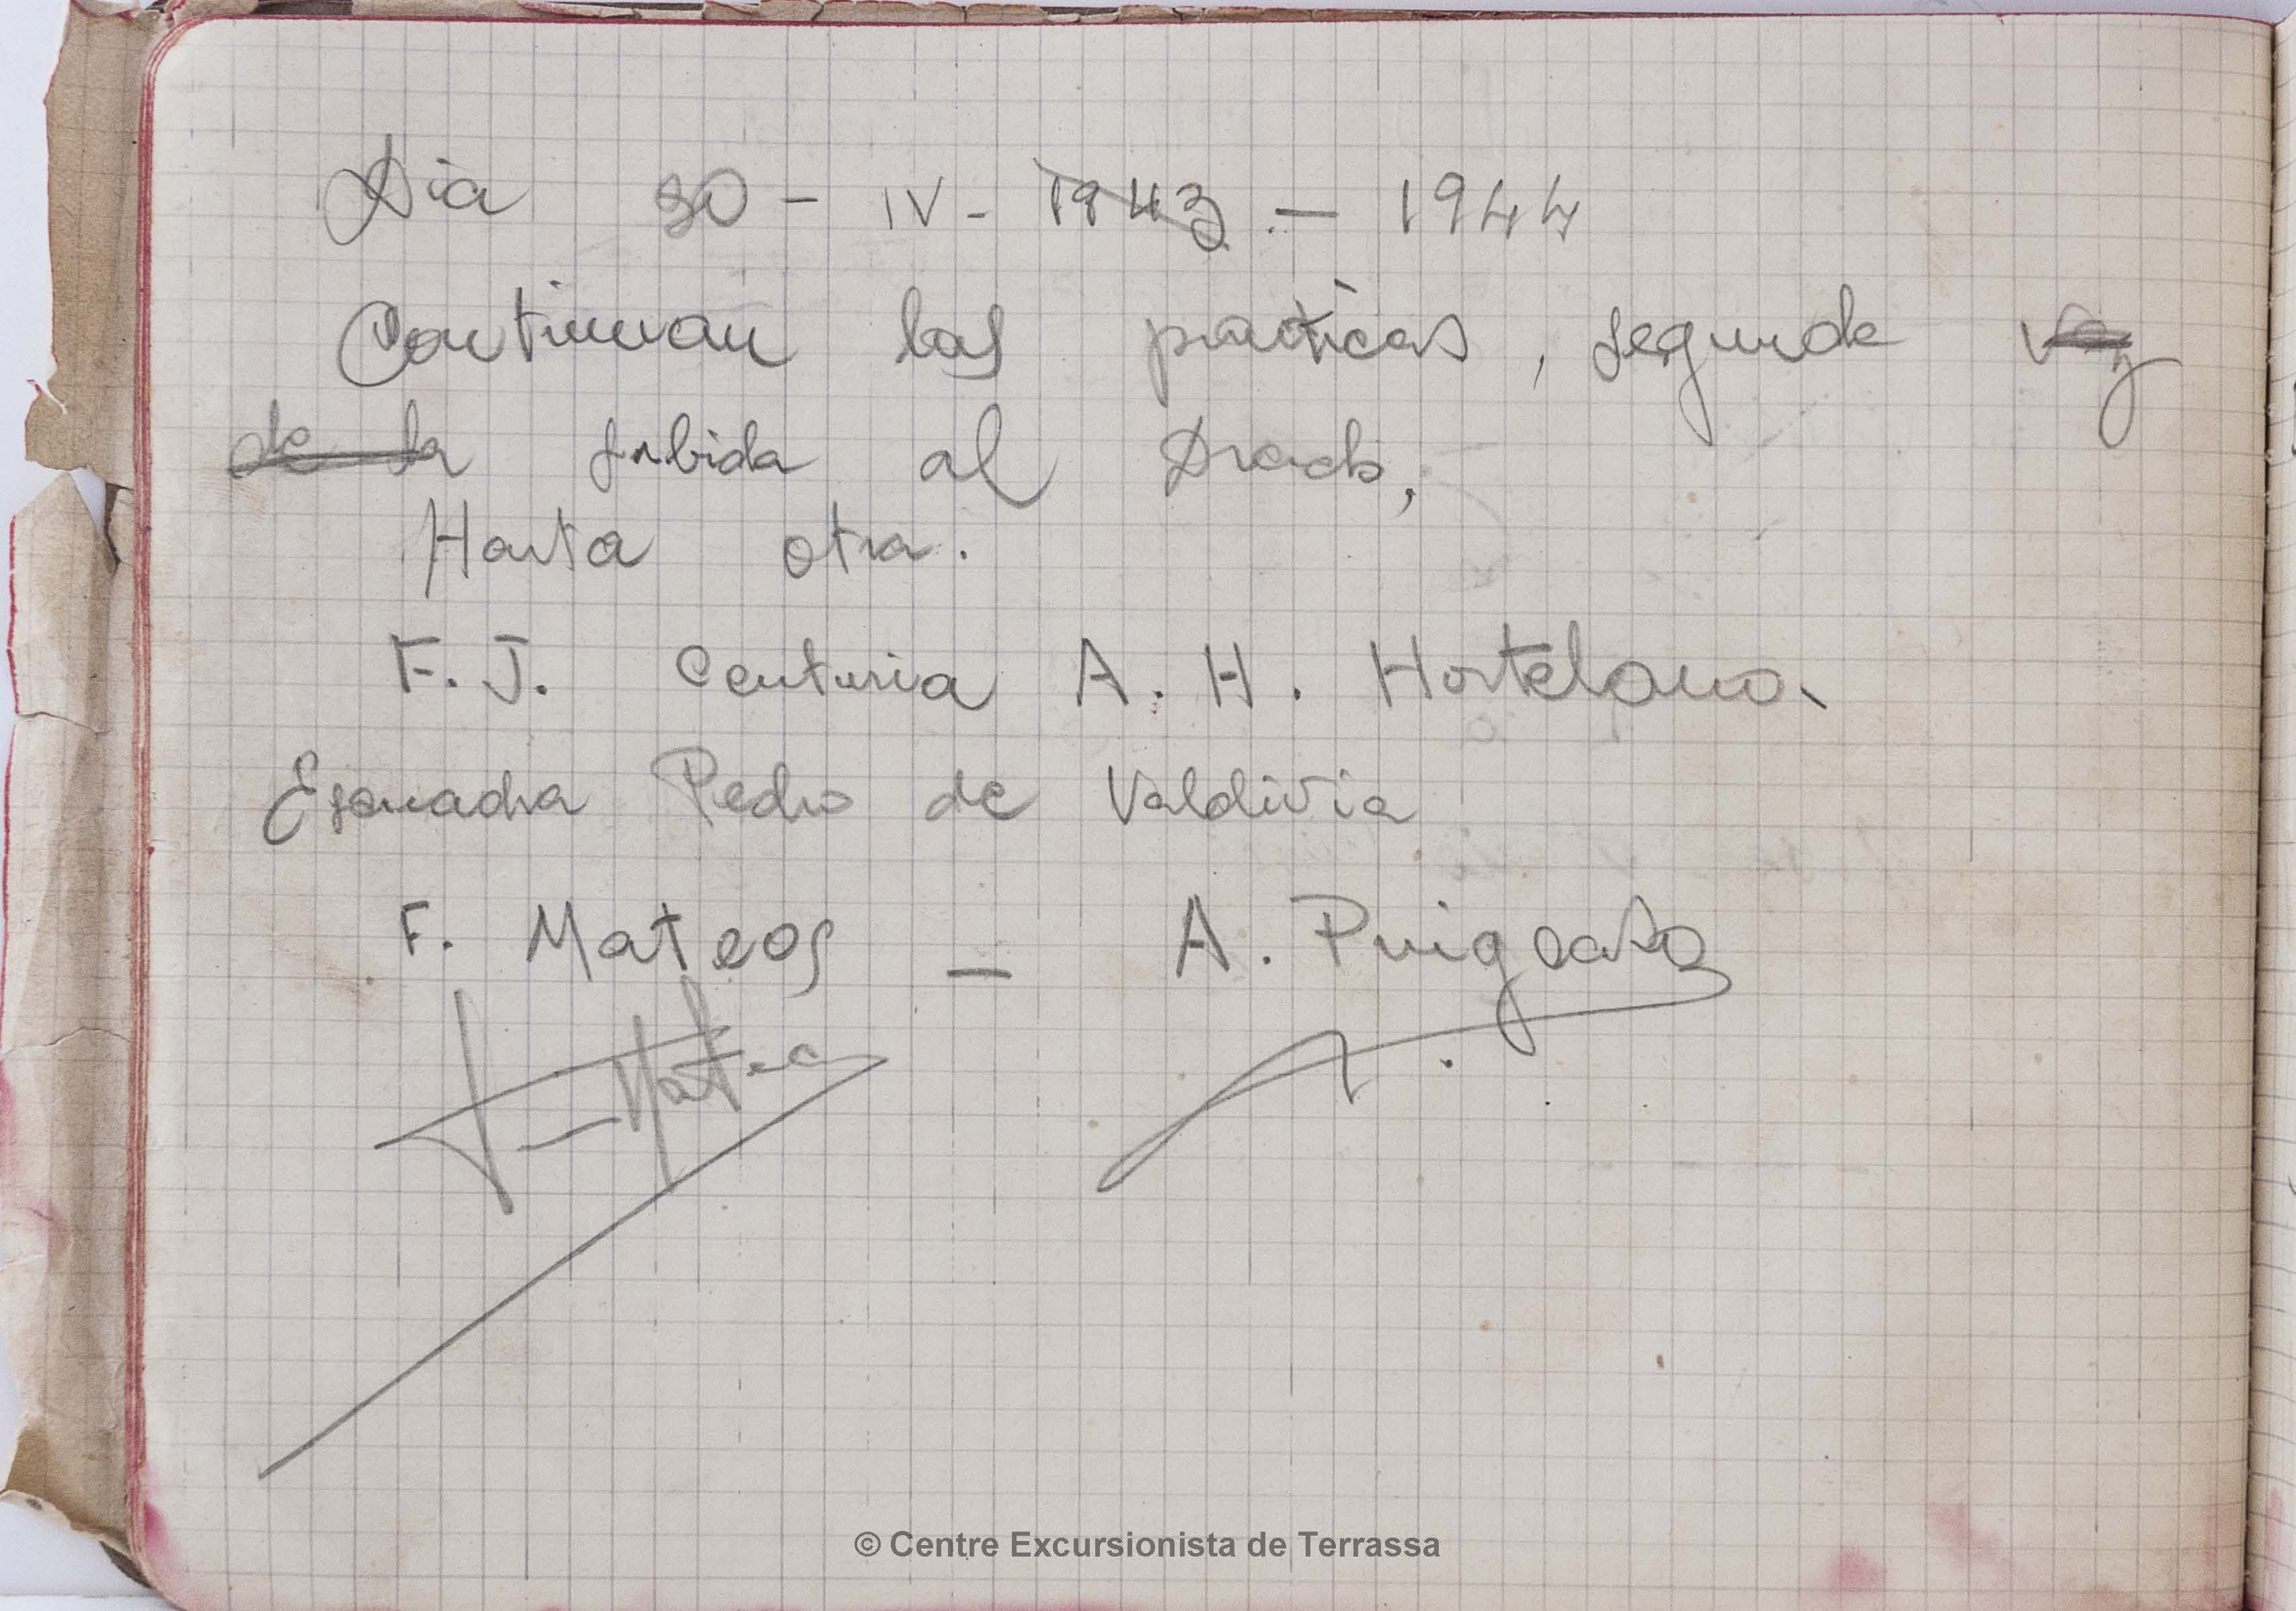 Dia 30 - IV - 1943 - 1944
Continuan las practicas, segunda vez
de la subida al Drach,
Hasta otra.
F. J. Centuria A. H. Hortelano.
Escuadra Pedro de Valdivia
F. Mateos - A. Puigcató
F. Mateos
© Centre Excursionista de Terrassa